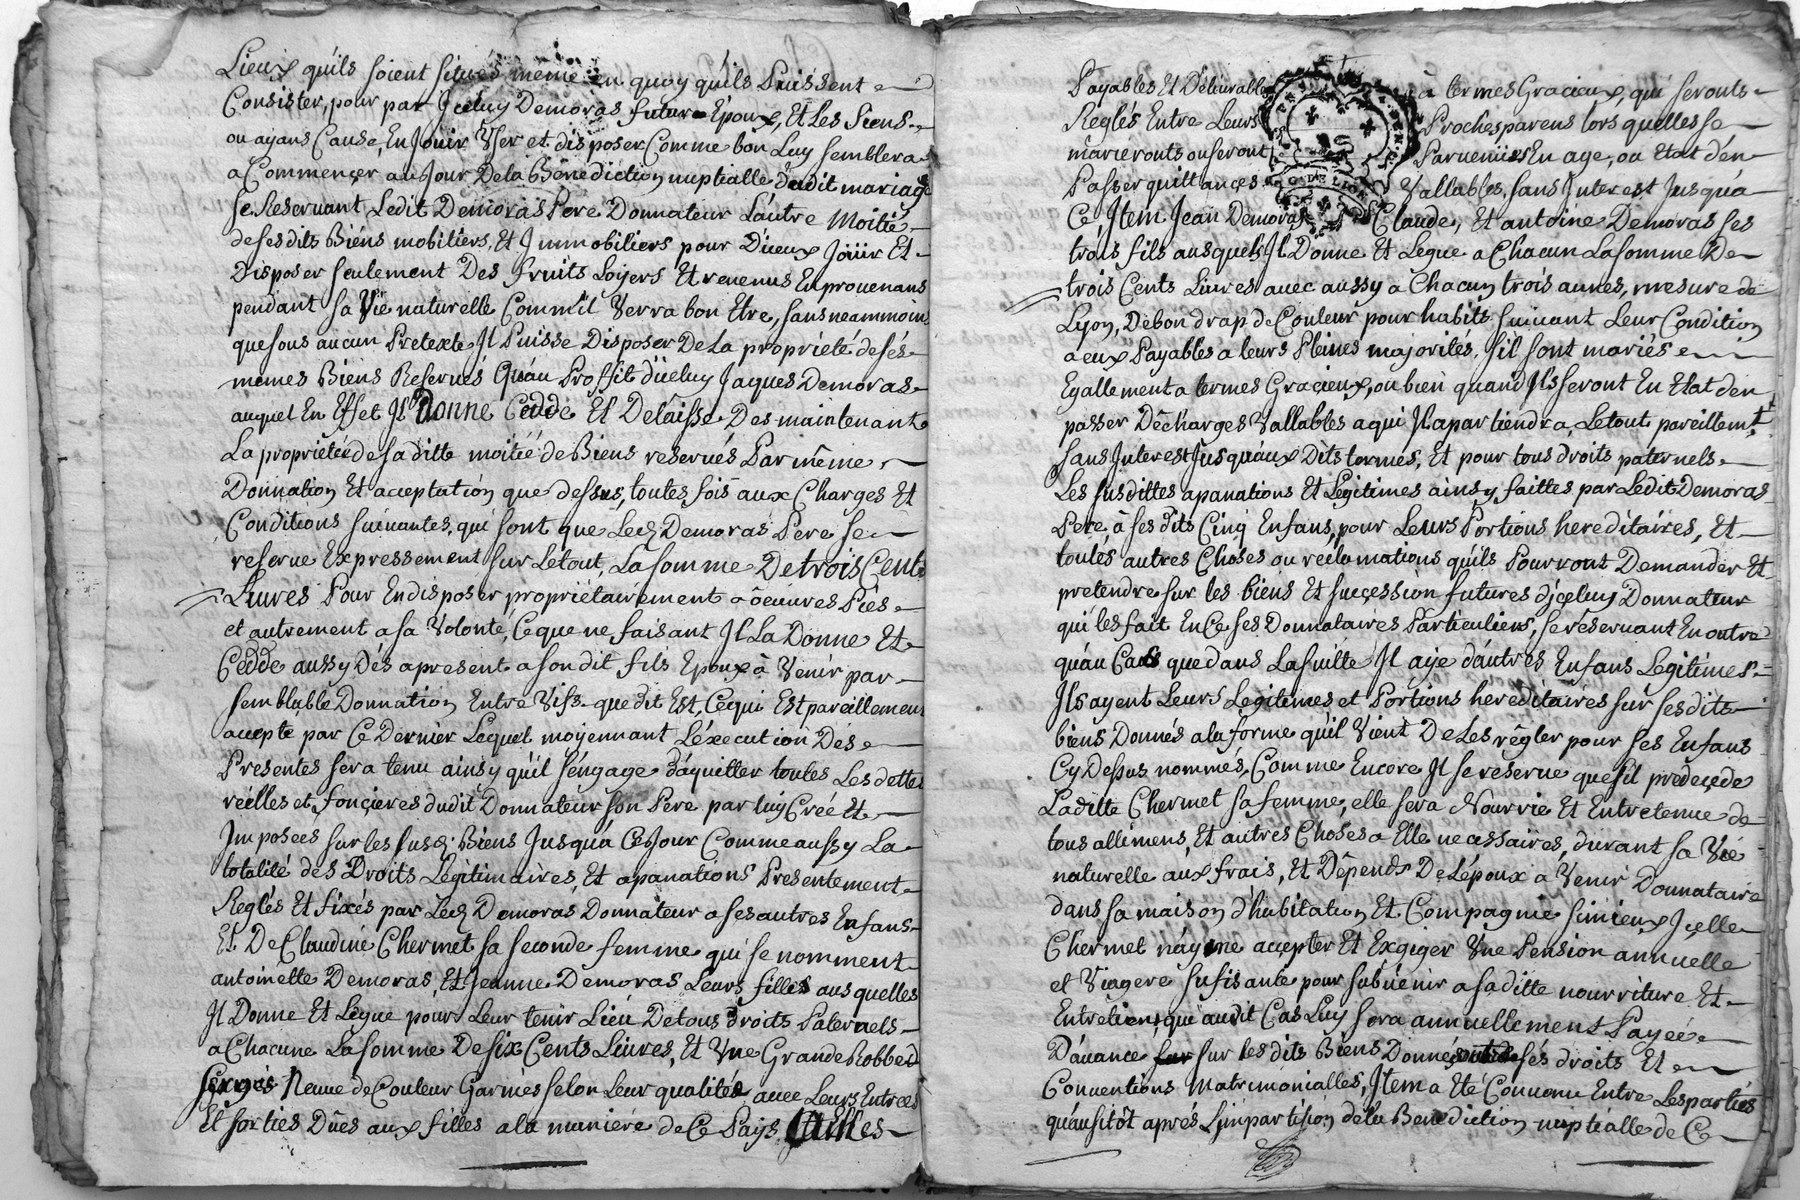 Lieux qu'ils soient situés même en quoy qu'ils Puissent
Consister, pour par Iceluy Demoras futur Epoux, Et Les Siens
ou ayans Cause, En Jouir User et disposer Comme bon Luy semblera
a Commençer au Jour De la Bénédiction nuptialle dudit mariage
se Reservant Ledit Demoras Pere Donnateur L'autre Moitié
de ses dits Biéns mobiliers, Et Immobiliers pour D'iceux Joüir Et
Disposer seulement Des fruits Loyers Et revenus En provenans
pendant sa Vie naturelle Comm'il Verra bon Etre, sans neammoins
que sous aucun Pretexte Il Puisse Disposer De La propriété de sés
mêmes Biéns Reservés Qu'au Proffit d'iceluy Jaques Demoras
auquel En Effet Il Donne Cédde Et Delaisse Des maintenant
La propriété de sa ditte moitié de Biens reservés Par même
Donnation Et acceptation que dessus, toutes fois aux Charges Et
Conditions suivantes, qui sont que Led. Demoras Pere se
reserve Expressement sur Le tout La somme De trois Cents
Livres Pour En disposer propriétairement a oeuvres Piés
et autrement a sa Volonté, Ce que ne faisant Il La Donne Et
Cedde aussy Dés apresent a son dit fils Epoux à Venir par
semblable Donnation Entre Vifs que dit Est, Ce qui Est pareillement
accepté par Ce Dernier Lequel moyennant L'éxecution Dés
Presentes sera tenu ainsy qu'il s'engage d'aquitter toutes Les dettes
réelles et fonçieres dudit Donnateur son Pere par luy Créé Et
Imposees sur les susd. Biens Jusqu'a Ce Jour Comme aussy La
totalité des Droits Légitimaires, Et apanations Presentement
Reglés Et fixés par Led. Demoras Donnateur a ses autres Enfans
Et De Claudine Chermet sa seconde femme qui se nomment
antoinette Demoras, Et Jeanne Demoras Leurs filles ausquelles
Il Donne Et Legue pour Leur tenir Lieu De tous droits Paternels
a Chacune La somme De six Cents Livres, Et Une Grande Robbe d
Neuve de Couleur Garniés selon Leur qualité avec Leurs Entreés
Et sorties Dûes aux filles a la maniére de Ce Pays,
Payables Et Delivrables à termes Gracieux, qui seronts
Reglés Entre Leurs Proches parens lors quelles se
marieronts ou seront Parvenües En age, ou Etat d'en
Passer quittances Vallables, sans Interest Jusqu'a
Ce, Item Jean Demoras, Claude, Et antoine Demoras ses
trois fils ausquels Il Donne Et Legue a Chacun La somme De
trois Cents Livres avec aussy a Chacun trois aunes, mesure de
Lyon, De bon drap de Couleur pour habits suivant Leur Condition
a eux Payables a leurs Pleines majorités, s'il sont mariés
Egallement a termes Gracieux, ou bien quand Il's seront En Etat d'en
passer Dêcharges Vallables a qui Il apartiendra, Le tout pareillemt.
sans Interest Jusqu'aux Dits termes, Et pour tous droits paternels
Les susdittes apanations Et Legitimes ainsy faittes par Ledit Demoras
Pere, à ses dits Cinq Enfans, pour Leurs Portions hereditaires, Et
toutés autres Choses ou réclamations qu'ils Pourront Demander Et
pretendre sur les biéns Et sucçession futures d'içeluy Donnateur
qui les fait En Ce ses Donnataires Particuliers, se réservant En outre
qu'au Cas que dans La suitte Il aye d'autres Enfans Legitimes
Ils ayent Leurs Legitimes et Portions hereditaires sur ses dits
biens Donnés a la forme qu'il Vient De Les règler pour ses Enfans
Cy Dessus nommés, Comme Encore Il se réserve que s'il predeçede
Laditte Chermet sa femme, elle sera Nourrie Et Entretenue de
tous allimens, Et autres Choses a Elle necessaires, durant sa Vie
naturelle aux frais, Et Dépends De L'époux a Venir Donnataire
dans sa maison d'habitation Et Compagnie si mieux Içelle
Chermet n'ayme accepter Et Exgiger Une Pension annuelle
et Viagere sufisante pour subvenir a saditte nourriture Et
Entretien, qui audit Cas Luy sera annuellement Payée
D'avance sur les dits Biens Donnés sés droits Et
Conventions Matrimonialles, Item a Eté Convenu Entre Les partiés
qu'ausitôt aprés L'impartision de la Benediction nuptialle de Ce